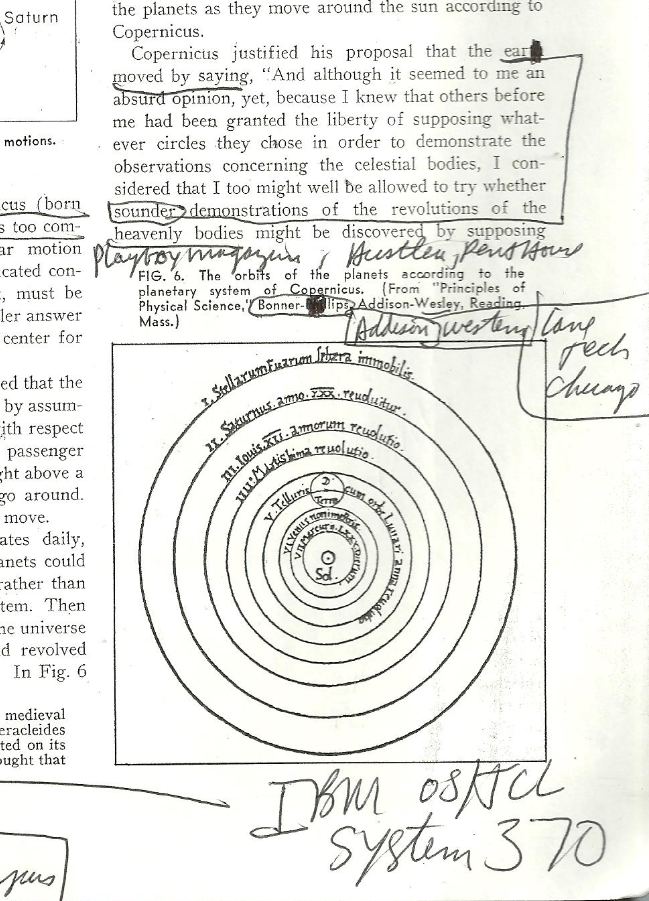 Saturn
motions.
cus (born
s too com-
ar motion
icated con-
, must be
ler answer
center for
ed that the
by assum-
ith respect
passenger
ght above a
go around.
move.
ates daily,
anets could
rather than
tem. Then
he universe
d revolved
In Fig. 6
medieval
eracleides
ted on its
ought that
the planets as they move around the sun according to
Copernicus.
Copernicus justified his proposal that the eart
moved by saying, "And although it seemed to me an
absurd opinion, yet, because I knew that others before
me had been granted the liberty of supposing what-
ever circles they chose in order to demonstrate the
observations concerning the celestial bodies, I con-
sidered that I too might well be allowed to try whether
sounder demonstrations of the revolutions of the
heavenly bodies might be discovered by supposing
Playboy magazine, Hustler, PentHouse
FIG. 6. The orbits of the planets according to the
planetary system of Copernicus. (From "Principles of
Physical Science," Bonner- lips, Addison-Wesley, Reading,
Mass.)
Addison westery
Lane
Tech
Chicago
I. Stellarum Fixarum Sphera immobilis.
II. Saturnus. anno. XXX. reuoluitur.
III. Iouis. XII. annorum reuolutio.
IIII. Martis bima reuolutio.
V. Telluris
cum orbe Lunari annua reuolutio
Terra
VI. Venus nonimestris
VII. Mercurii. LXXX. dierum.
Sol.
IBM OS/HCL
System 370